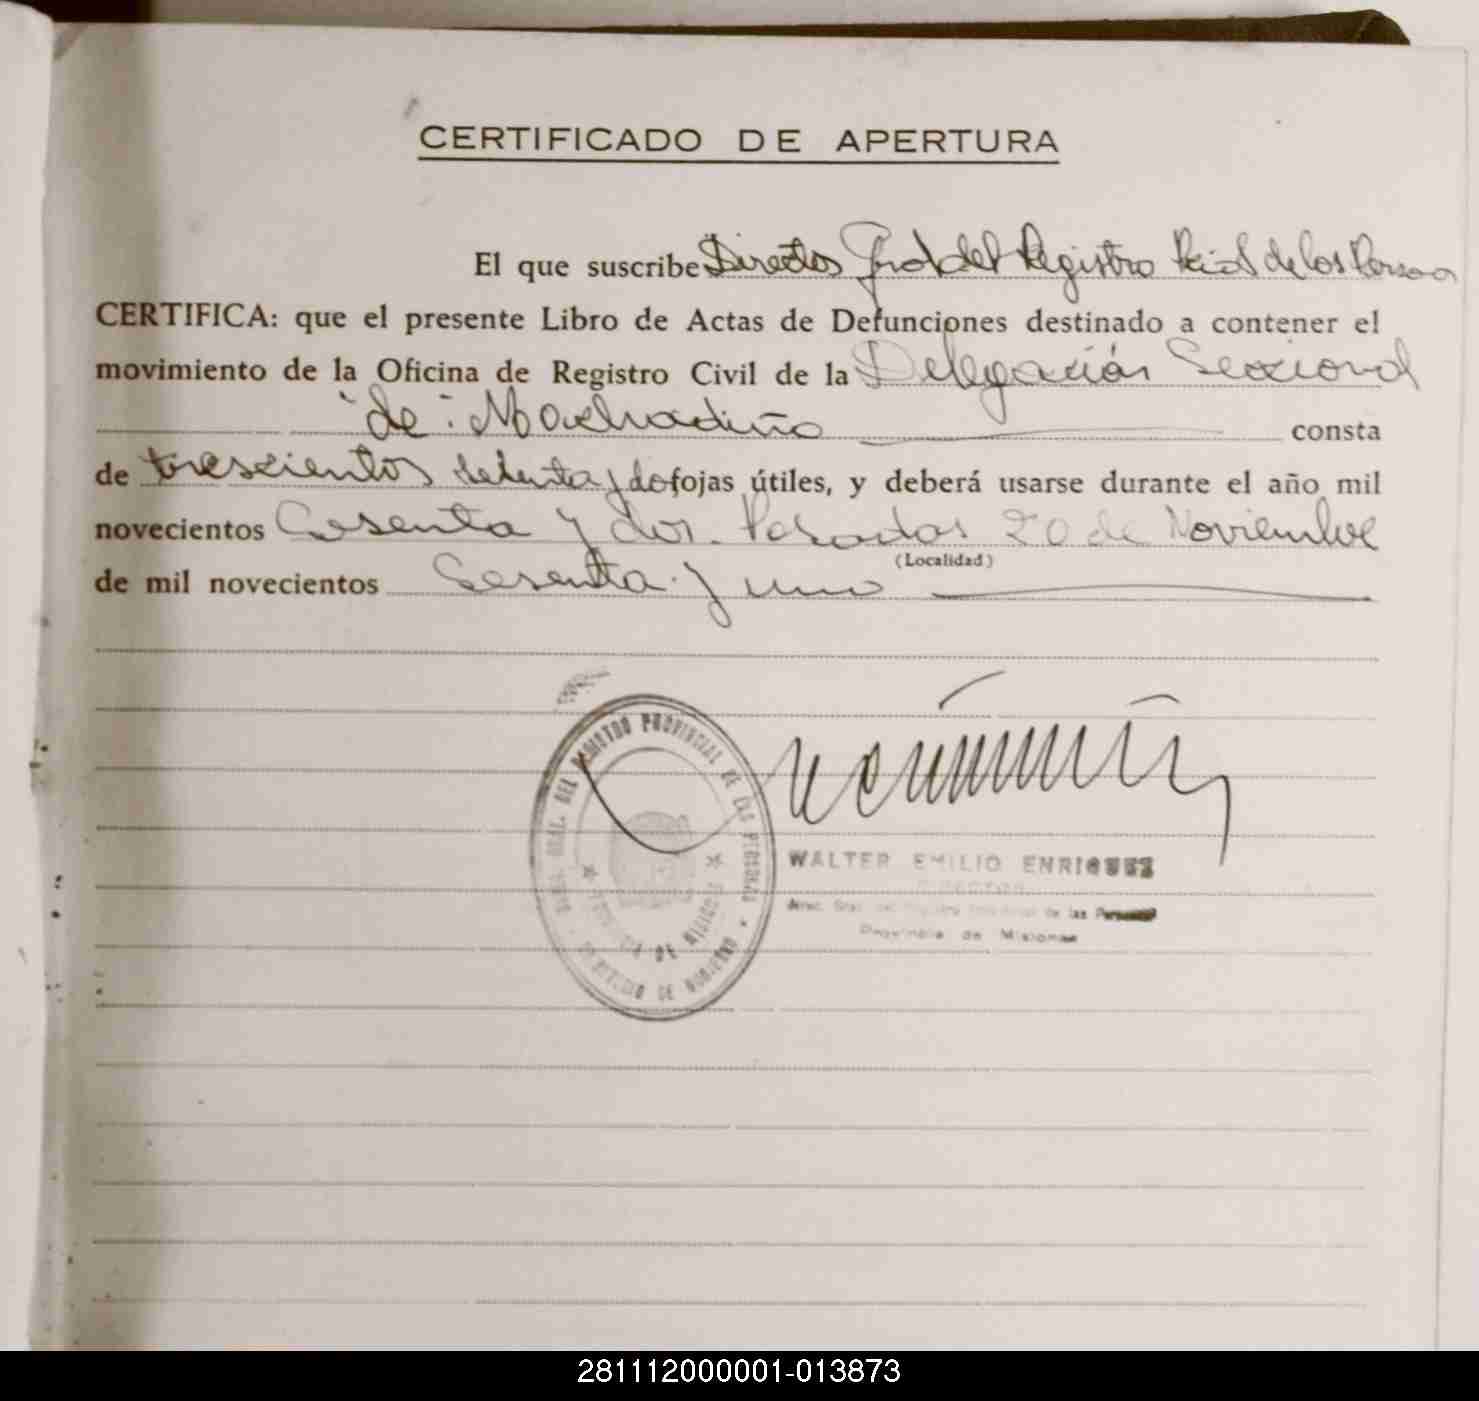 CERTIFICADO DE APERTURA
El que suscribe Director Gral del Registro Pcial de los Personas
CERTIFICA: que el presente Libro de Actas de Defunciones destinado a contener el
movimiento de la Oficina de Registro Civil de la Delegación Seccional
"de" consta
de trescientos setenta y dos fojas útiles, y deberá usarse durante el año mil
novecientos Sesenta y dos. Posadas 20 de Noviembre
(Localidad)
de mil novecientos Sesenta y uno
GRAL. DEL REGISTRO PROVINCIAL DE LAS PERSONAS
DE MISIONES
DE GOBIERNO
WALTER EMILIO ENRIQUEZ
DIRECTOR
Direc. Gral. del Registro Provincial de las Personas
Provincia de Misiones
281112000001-013873